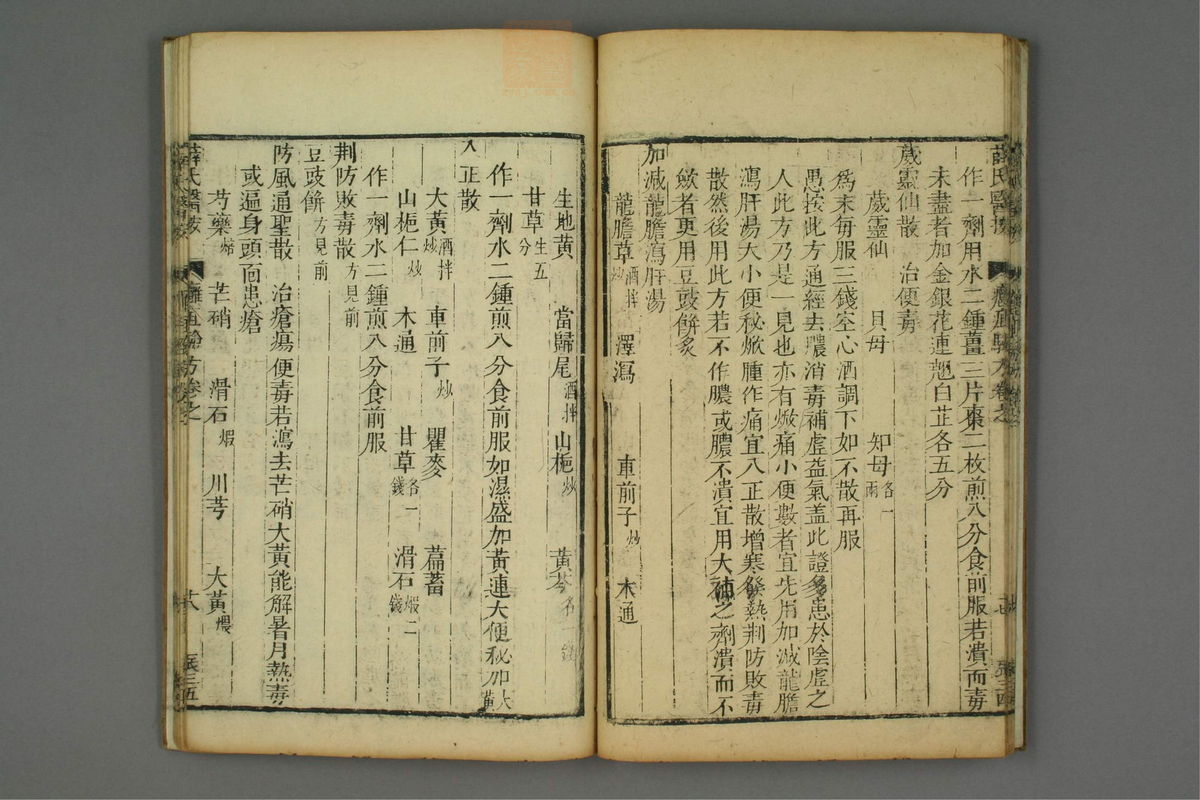 薛氏醫按
作一劑用水二鍾薑三片棗二枚煎八分食前服若潰而毒
未盡者加金銀花連翹白芷各五分
葳靈仙散　治便毒
葳靈仙　貝母　知母各一兩
爲末每服三錢空心酒調下如不散再服
愚按此方通經去膿消毒補虛益氣盖此證多患於陰虛之
人此方乃是一見也亦有焮痛小便數者宜先用加減龍膽
瀉肝湯大小便秘焮腫作痛宜八正散增寒發熱荆防敗毒
散然後用此方若不作膿或膿不潰宜用大補之劑潰而不
斂者更用豆豉餅炙
加減龍膽瀉肝湯
龍膽草酒拌炒　澤瀉　車前子炒　木通
生地黄　當歸尾酒拌　山梔炒　黄芩
甘草生五分
作一劑水二鍾煎八分食前服如濕盛加黄連大便秘加大黄
八正散
大黄酒拌炒　車前子炒　瞿麥　萹蓄
山梔仁炒　木通　甘草各一錢　滑石煅二錢
作一劑水二鍾煎八分食前服
荆防敗毒散方見前
豆豉餅方見前
防風通聖散　治瘡瘍便毒若瀉去芒硝大黄能解暑月熱毒
或遍身頭面患瘡
芍藥　芒硝　滑石煅　川芎　大黄煨
薛氏醫按　卷之　廿八　張三五